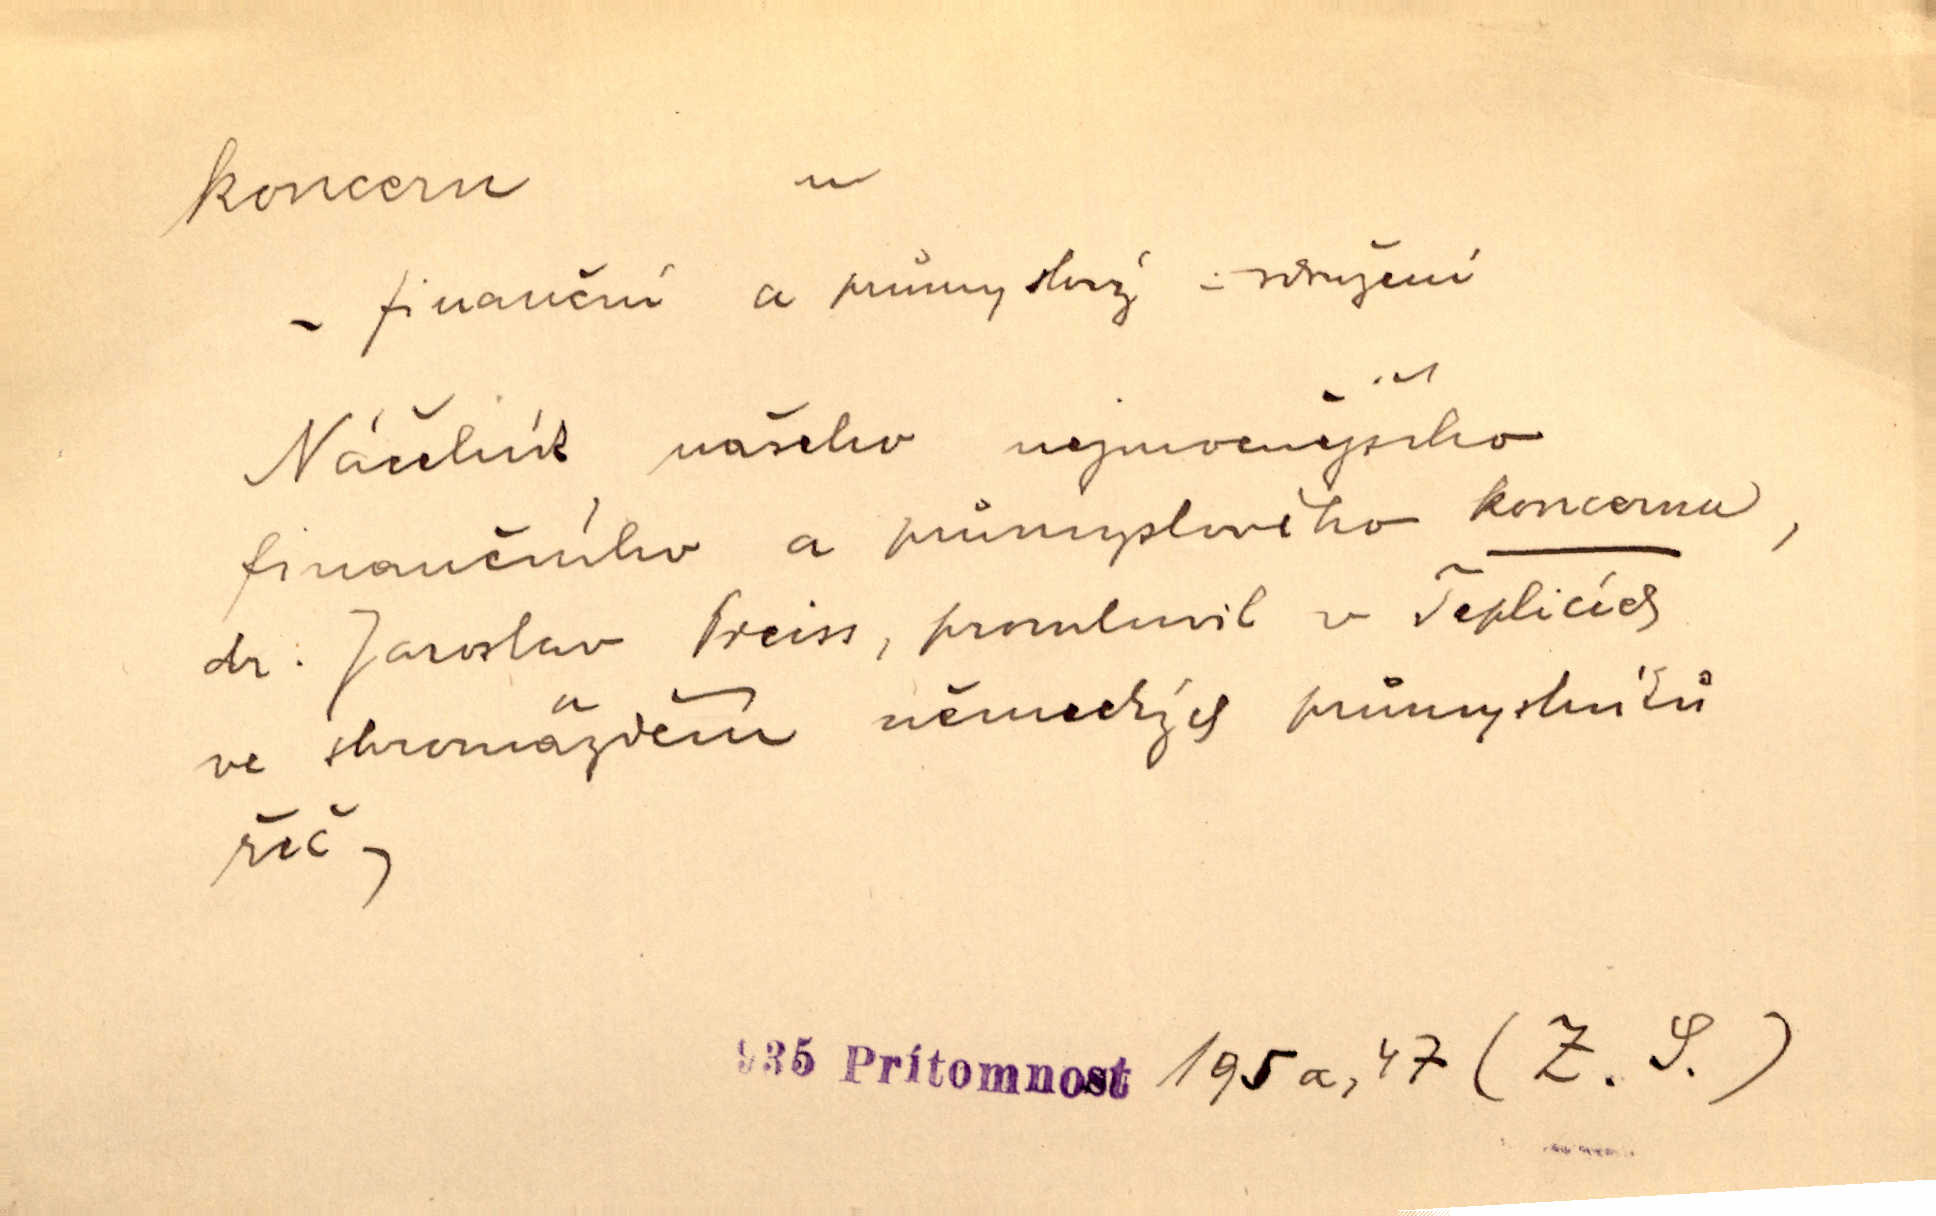 koncern m
- finanční a průmyslový = sdružení
Náčelník našeho nejmocnějšího
finančního a průmyslového koncernu,
dr. Jaroslav Preiss, promluvil v Teplicích
ve shromáždění německých průmyslníků
řeč,
935 Prítomnost 195a, 47 (Z. S.)